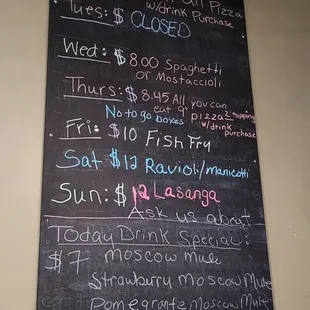 Pizza
w/drink Purchase
Tues: $ CLOSED
Wed: $ 8.00 Spaghetti
or Mostaccioli
Thurs: $ 8.45 All you can
eat 9"
pizza 2 topping
w/drink
purchase
No to go boxes
Fri: $10 Fish Fry
Sat $12 Ravioli/manicotti
Sun: $12 Lasanga
Ask us about
Today Drink Special:
$7 moscow mule
Strawburry Moscow Mule
Pomegrante Moscow Mule